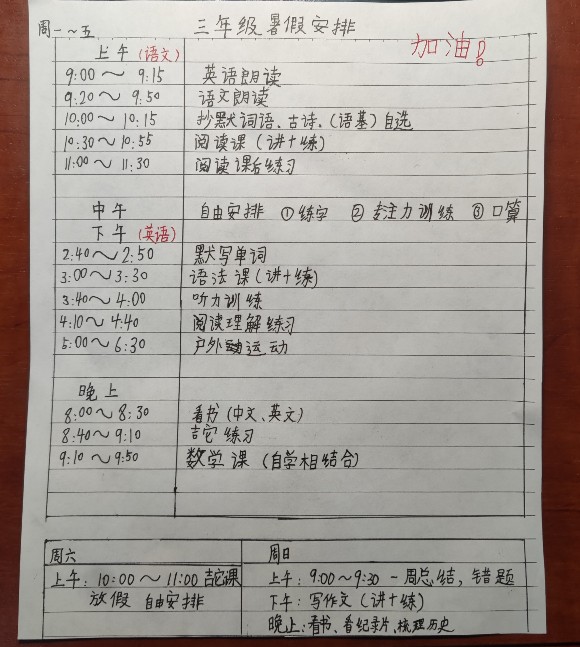 周一~五 三年级暑假安排
加油!
上午(语文)
9:00~9:15 英语朗读
9:20~9:50 语文朗读
10:00~10:15 抄默词语、古诗、(语基)自选
10:30~10:55 阅读课(讲+练)
11:00~11:30 阅读课后练习
中午 自由安排 ①练字 ②专注力训练 ③口算
下午(英语)
2:40~2:50 默写单词
3:00~3:30 语法课(讲+练)
3:40~4:00 听力训练
4:10~4:40 阅读理解练习
5:00~6:30 户外运动
晚上
8:00~8:30 看书(中文、英文)
8:40~9:10 吉它练习
9:10~9:50 数学课(自学相结合)
周六
上午:10:00~11:00吉它课
放假 自由安排
周日
上午:9:00~9:30 一周总结,错题
下午:写作文(讲+练)
晚上:看书、看纪录片、梳理历史